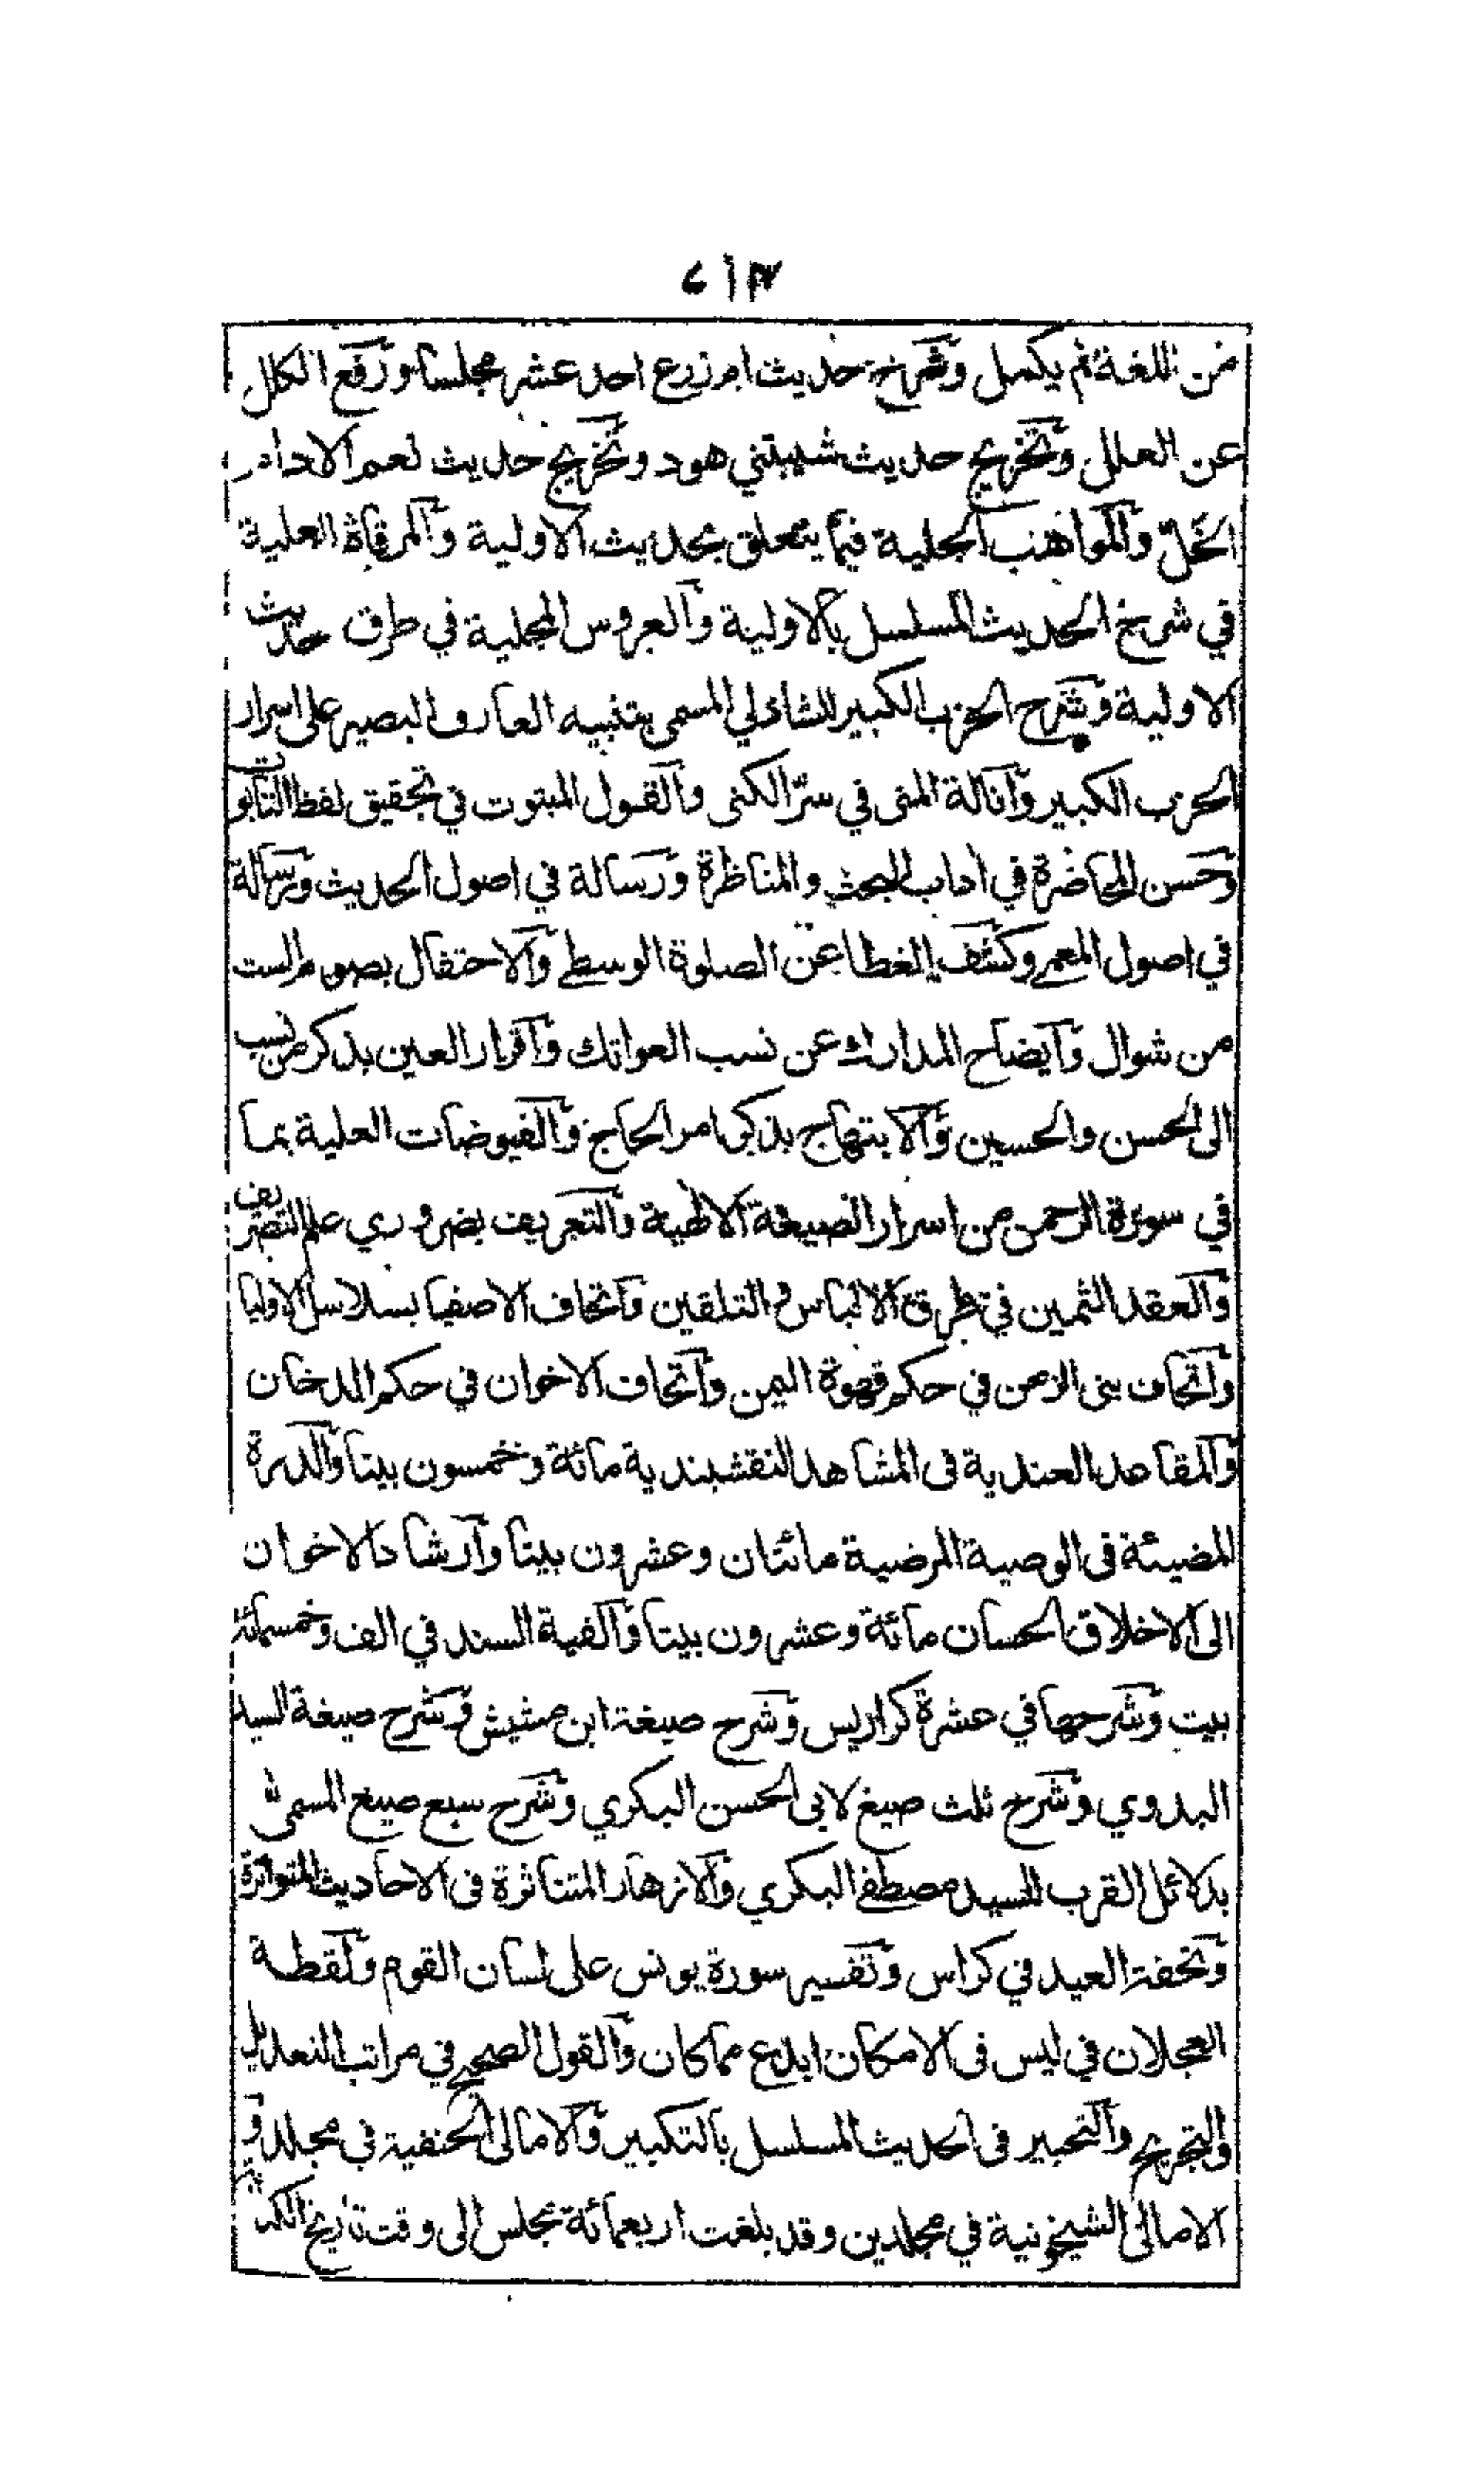 ٤١٢
من اللغة لم يكمل وشرح حديث ام زرع احد عشر مجلسا ورفع الكلل
عن العلل وتخريج حديث شيبتني هود وتخريج حديث نعم الادام
الخل والمواهب الجلية فيما يتعلق بحديث الاولية والمرقاة العلية
في شرح الحديث المسلسل بالاولية والعروس المجلية في طرق حديث
الاولية وشرح الحزب الكبير للشاذلي المسمى بتنبيه العارف البصير على اسرار
الحزب الكبير وانالة المنى في سر الكنى والقول المبتوت في تحقيق لفظ التابوت
وحسن المحاضرة في اداب البحث والمناظرة ورسالة في اصول الحديث ورسالة
في اصول المعمى وكشف الغطا عن الصلوة الوسطى والاحتفال بصوم الست
من شوال وايضاح المدارك عن نسب العواتك واقرار العين بذكر من نسب
الى الحسن والحسين والابتهاج بذكر امر الحاج والفيوضات العلية بما
في سورة الرحمن من اسرار الصيغة الالهية والتعريف بضروري علم التصريف
والعقد الثمين في طرق الالباس والتلقين واتحاف الاصفيا بسلاسل الاوليا
واتحاف بنى الزمن في حكم قهوة اليمن واتحاف الاخوان في حكم الدخان
والمقاعد العندية في المشاهد النقشبندية مائة وخمسون بيتا والدرة
المضيئة في الوصية المرضية مائتان وعشرون بيتا وارشاد الاخوان
الى الاخلاق الحسان مائة وعشرون بيتا والفية السند في الف وخمسمائة
بيت وشرحها في عشرة كراريس وشرح صيغة ابن مشيش وشرح صيغة السيد
البدوي وشرح ثلث صيغ لابى الحسن البكري وشرح سبع صيغ المسمى
بدلائل القرب للسيد مصطفى البكري والازهار المتناثرة في الاحاديث المتواترة
وتحفة العيد في كراس وتفسير سورة يونس على لسان القوم ولقطة
العجلان في ليس في الامكان ابدع مما كان والقول الصحيح في مراتب التعديل
والتجريح والتحبير في الحديث المسلسل بالتكبير والامالى الحنفية في مجلد و
الامالى الشيخونية في مجلدين وقد بلغت اربعمائة مجلس الى وقت تاريخ